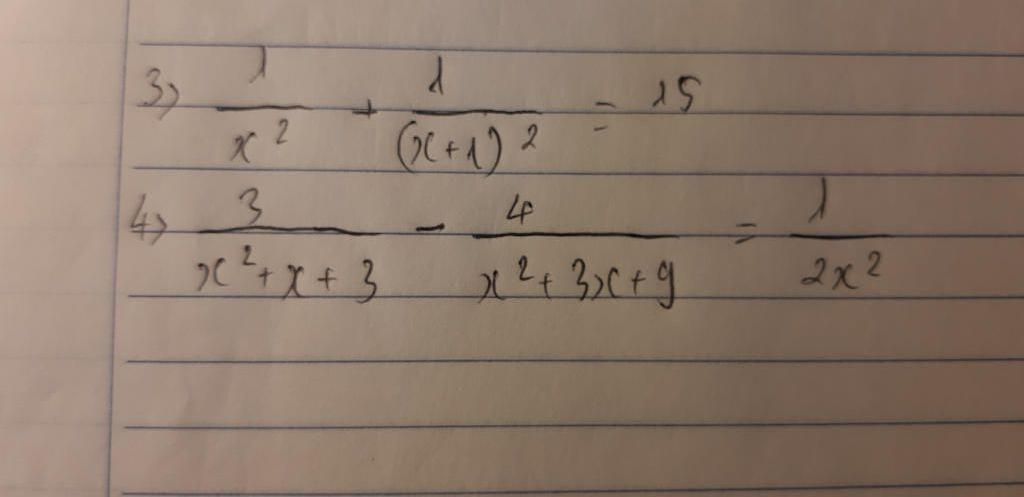 3) 1/x² + 1/(x+1)² = 15
4) 3/(x²+x+3) - 4/(x²+3x+9) = 1/(2x²)